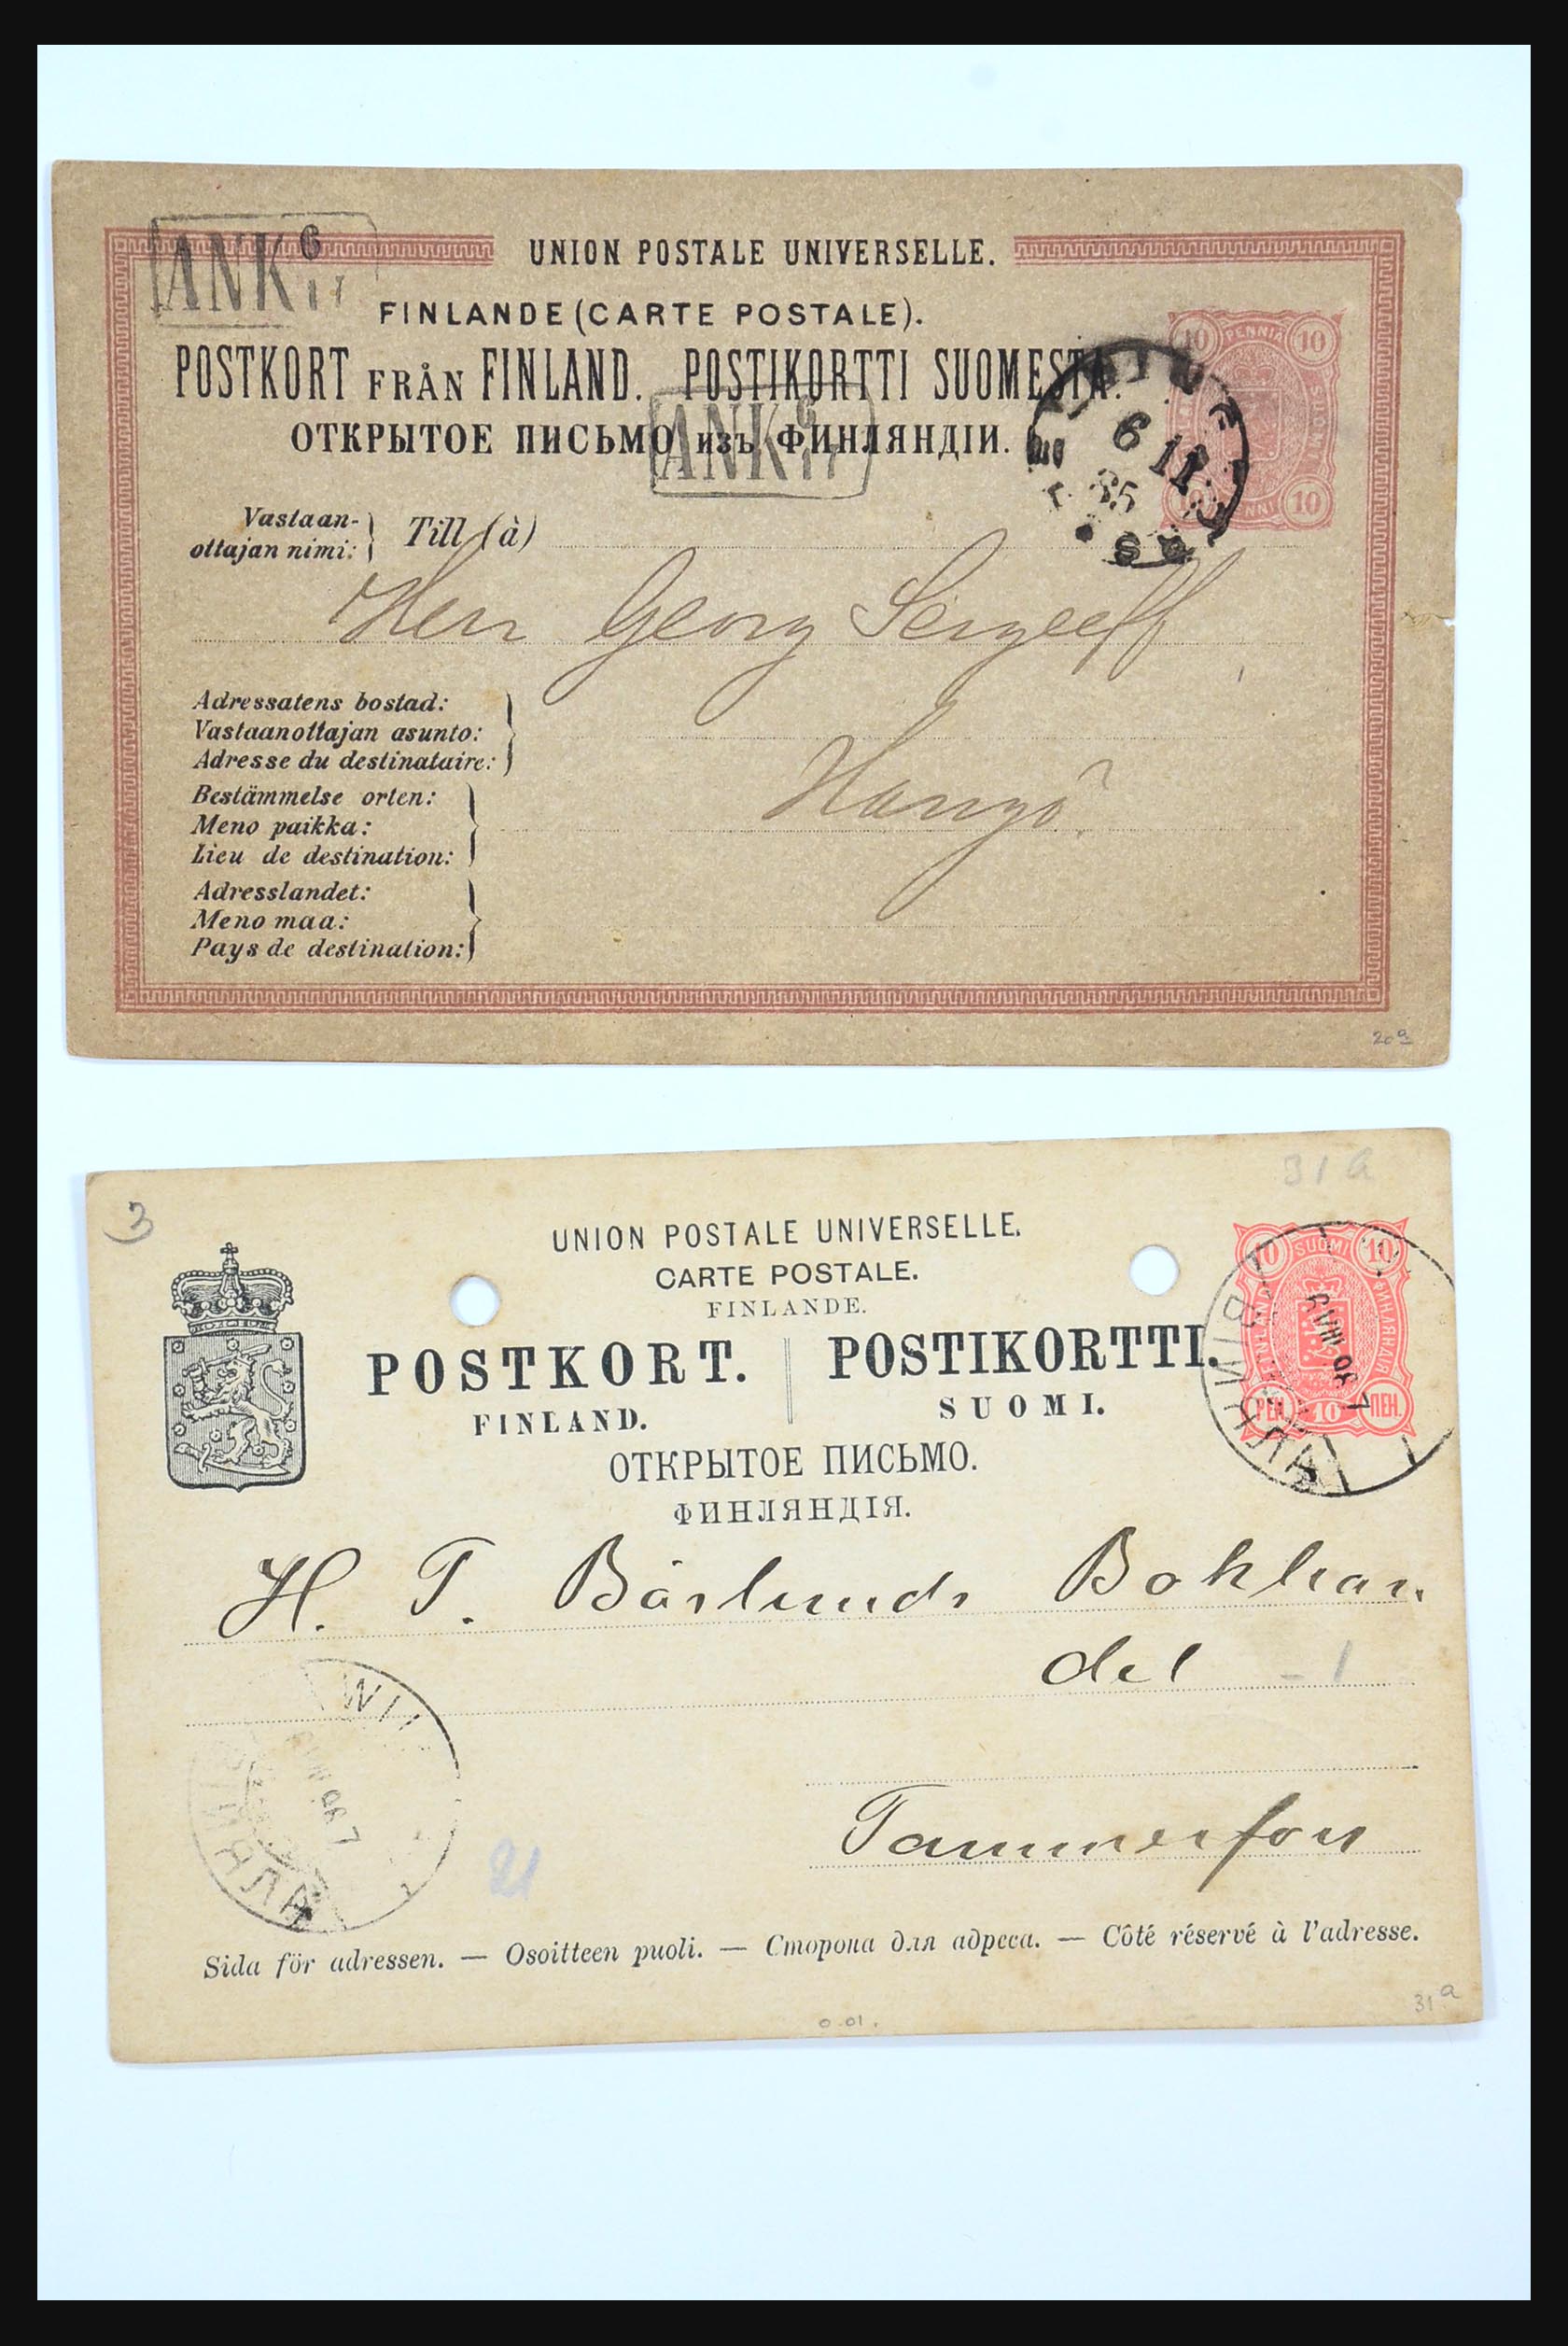 ANK 6
11
UNION POSTALE UNIVERSELLE.
FINLANDE (CARTE POSTALE).
POSTKORT FRÅN FINLAND. POSTIKORTTI SUOMESTA.
ОТКРЫТОЕ ПИСЬМО изъ ФИНЛЯНДІИ.
10 PENNIÄ 10
SUOMI
10
ANK 6
11
6 11
85
Vastaan-
ottajan nimi: Till (à)
Herr Georg Sergeeff,
Adressatens bostad:
Vastaanottajan asunto:
Adresse du destinataire:
Hangö
Bestämmelse orten:
Meno paikka:
Lieu de destination:
Adresslandet:
Meno maa:
Pays de destination:
20a
31a
3
UNION POSTALE UNIVERSELLE.
CARTE POSTALE.
FINLANDE.
POSTKORT. POSTIKORTTI.
FINLAND. SUOMI.
ОТКРЫТОЕ ПИСЬМО.
ФИНЛЯНДІЯ.
10 SUOMI 10
FINLAND ФИНЛЯНДІЯ
PEN. 10 ПЕН.
H. T. Bärlunds Bokhan
del - 1
Tammerfors
WII
21
Sida för adressen. — Osoitteen puoli. — Сторона для адреса. — Côté réservé à l'adresse.
31a
0.01.